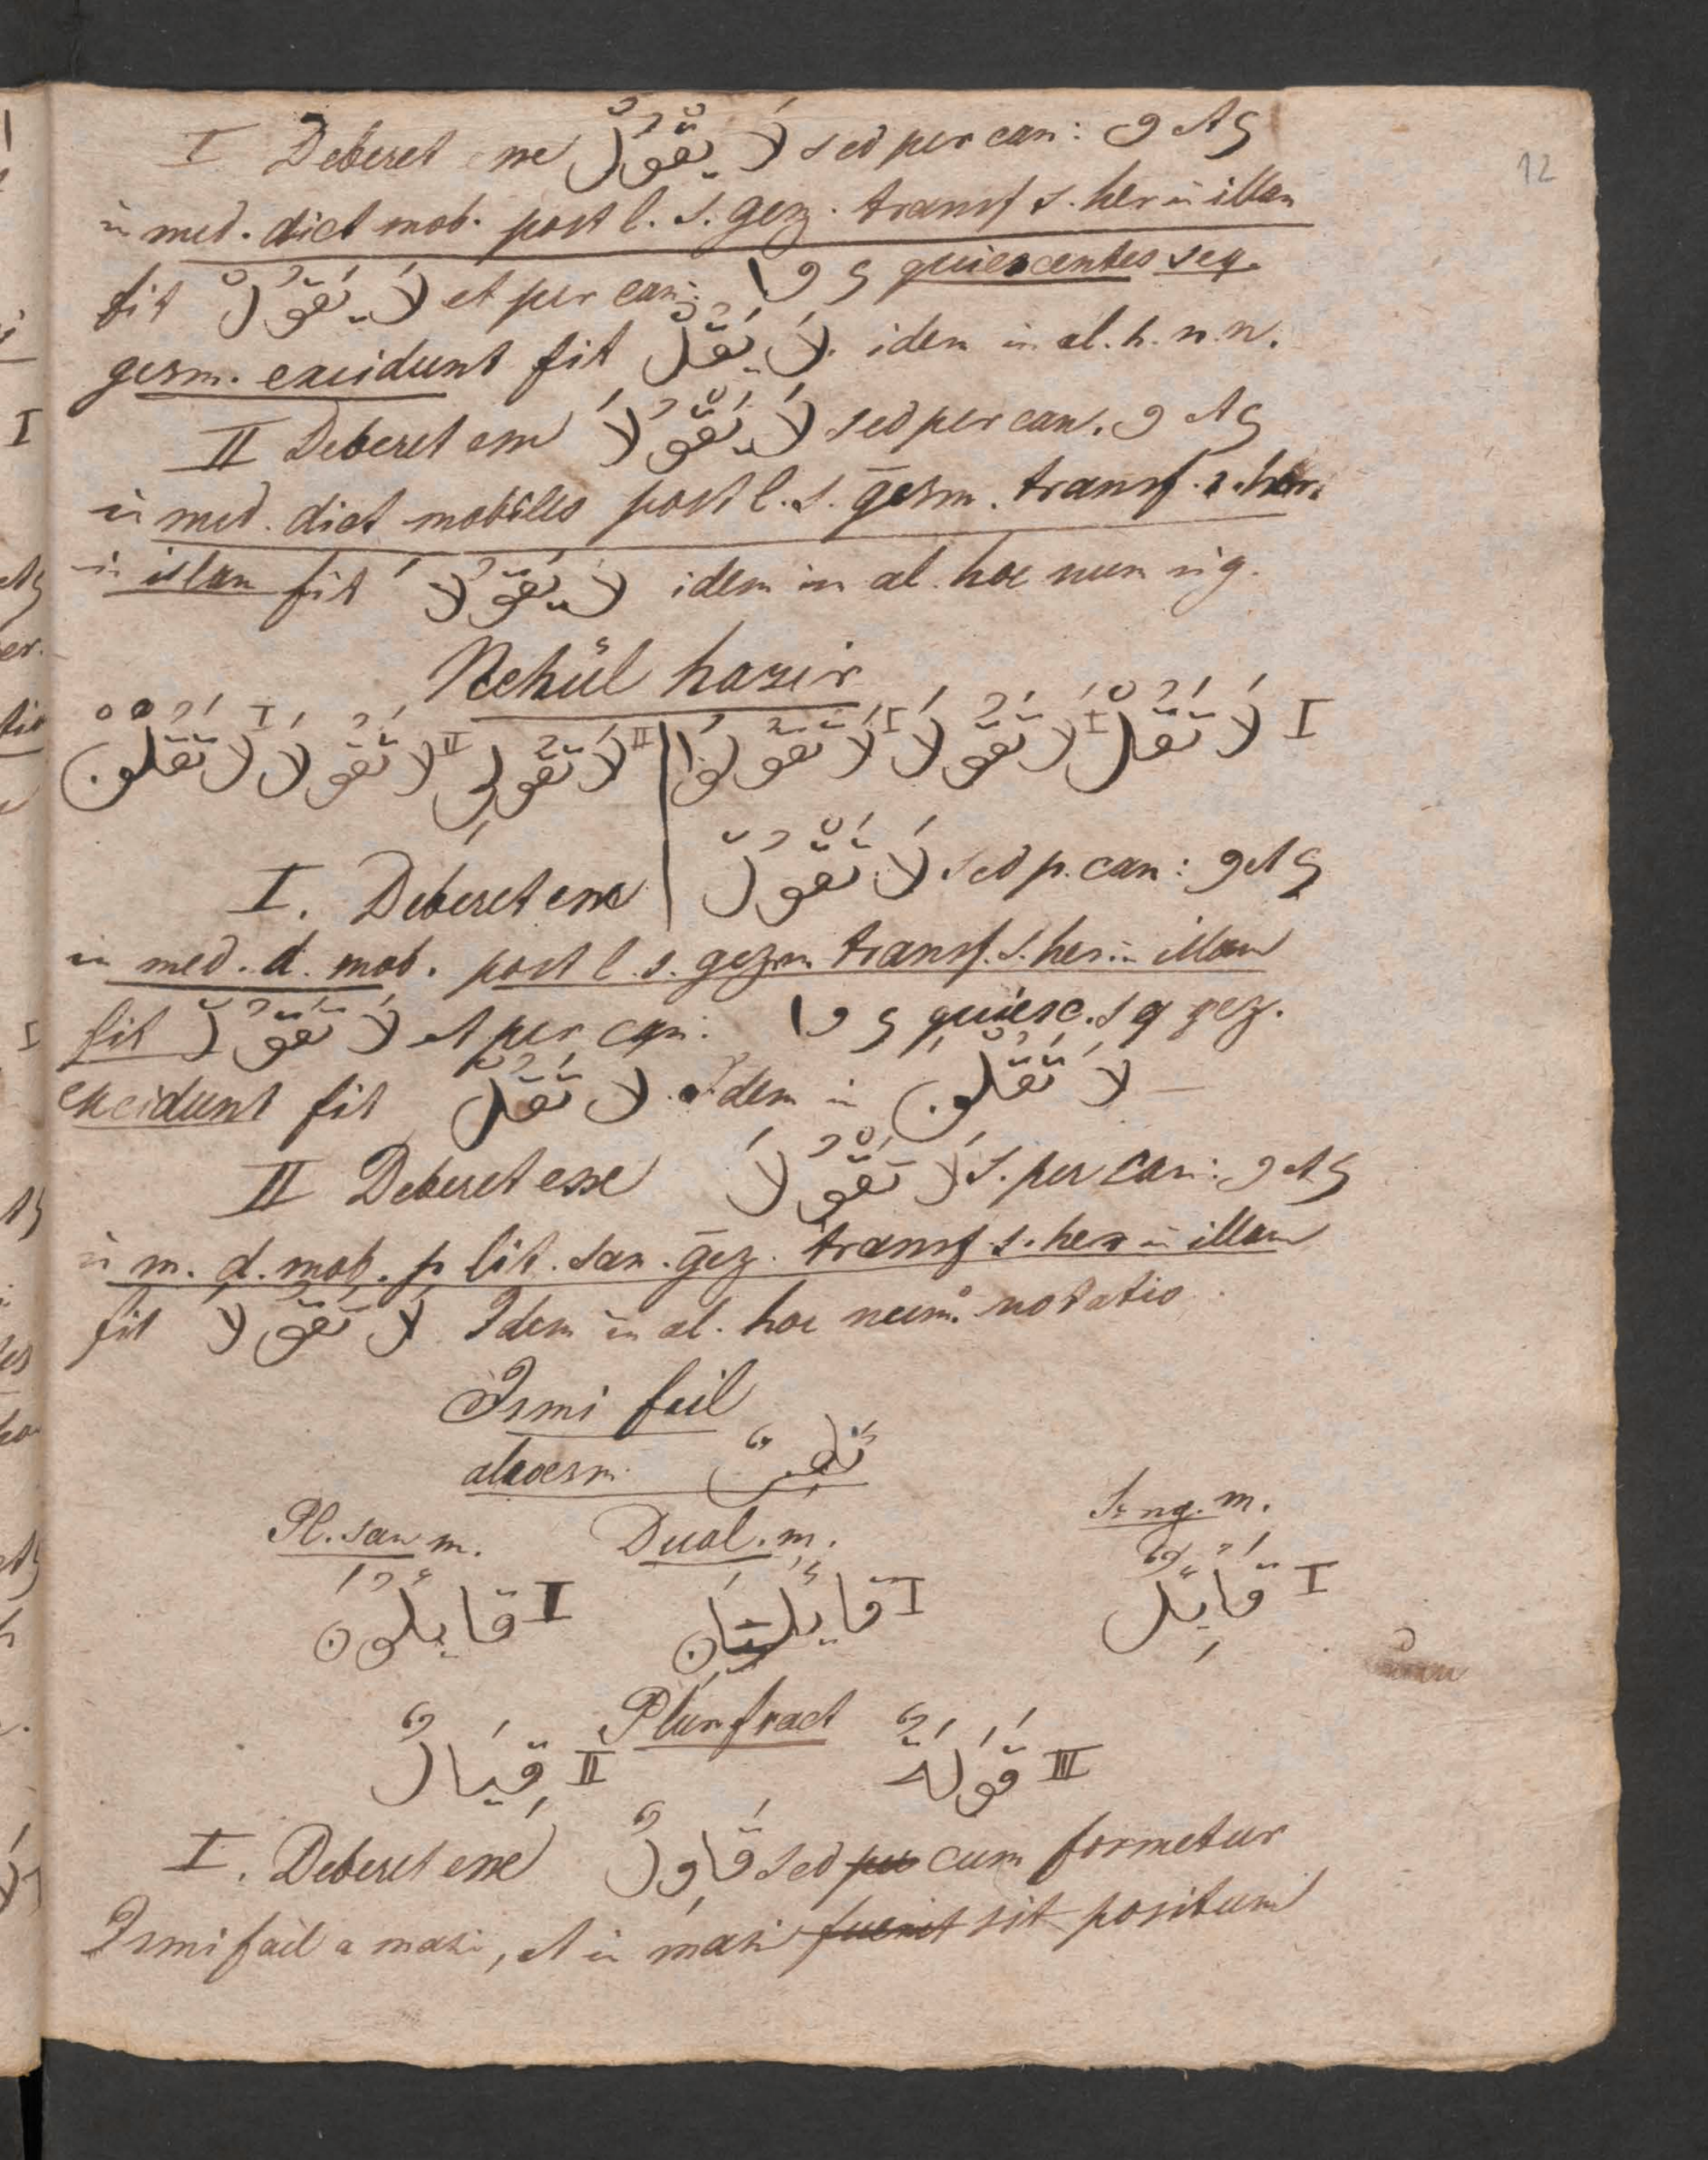 12
I Deberet esse لَا يَقْوُلْ sed per can: و et ي
in med. dict mob. post l. s. gez. transf s. her in illam
fit لَا يَقُوْلْ et per can: ا و ي quiescentes seq.
gesm. excidunt fit لَا يَقُلْ idem in al. h. n. n.
II Deberet esse لَا يَقْوُلَا sed per can. و et ي
in med. dict mobiles post l. s. gesm. transf. s. her.
in illam fit لَا يَقُولَا idem in al. hoc num sig.
Nehül hazir
I لَا تَقُلْ I لَا تَقُولَا I لَا تَقُولُوا II لَا تَقُولِي II لَا تَقُولَا I لَا تَقُلْنَ
I. Deberet esse لَا تَقْوُلْ sed p. can: و et ي
in med. d. mob. post l. s. gezm transf. s. her in illam
fit لَا تَقُوْلْ et per can: ا و ي quiesc. sq gez.
excidunt fit لَا تَقُلْ. Idem in لَا تَقُلْنَ
II Deberet esse لَا تَقْوُلَا s. per can: و et ي
in m. d. mob. p lit. san. gez. transf s. her in illam
fit لَا تَقُولَا Idem in al. hoc num. notatis.
Ismi fail
Sing. m.
Pl. san m. Dual. m.
I قَائِلٌ I قَائِلَانِ I قَائِلُونَ
Plur fract
III قَوَلَةٌ II قِيَالٌ
I. Deberet esse قَاوِلٌ sed per cum formetur
Ismi fail a mazi, et in mazi fuerit sit positum